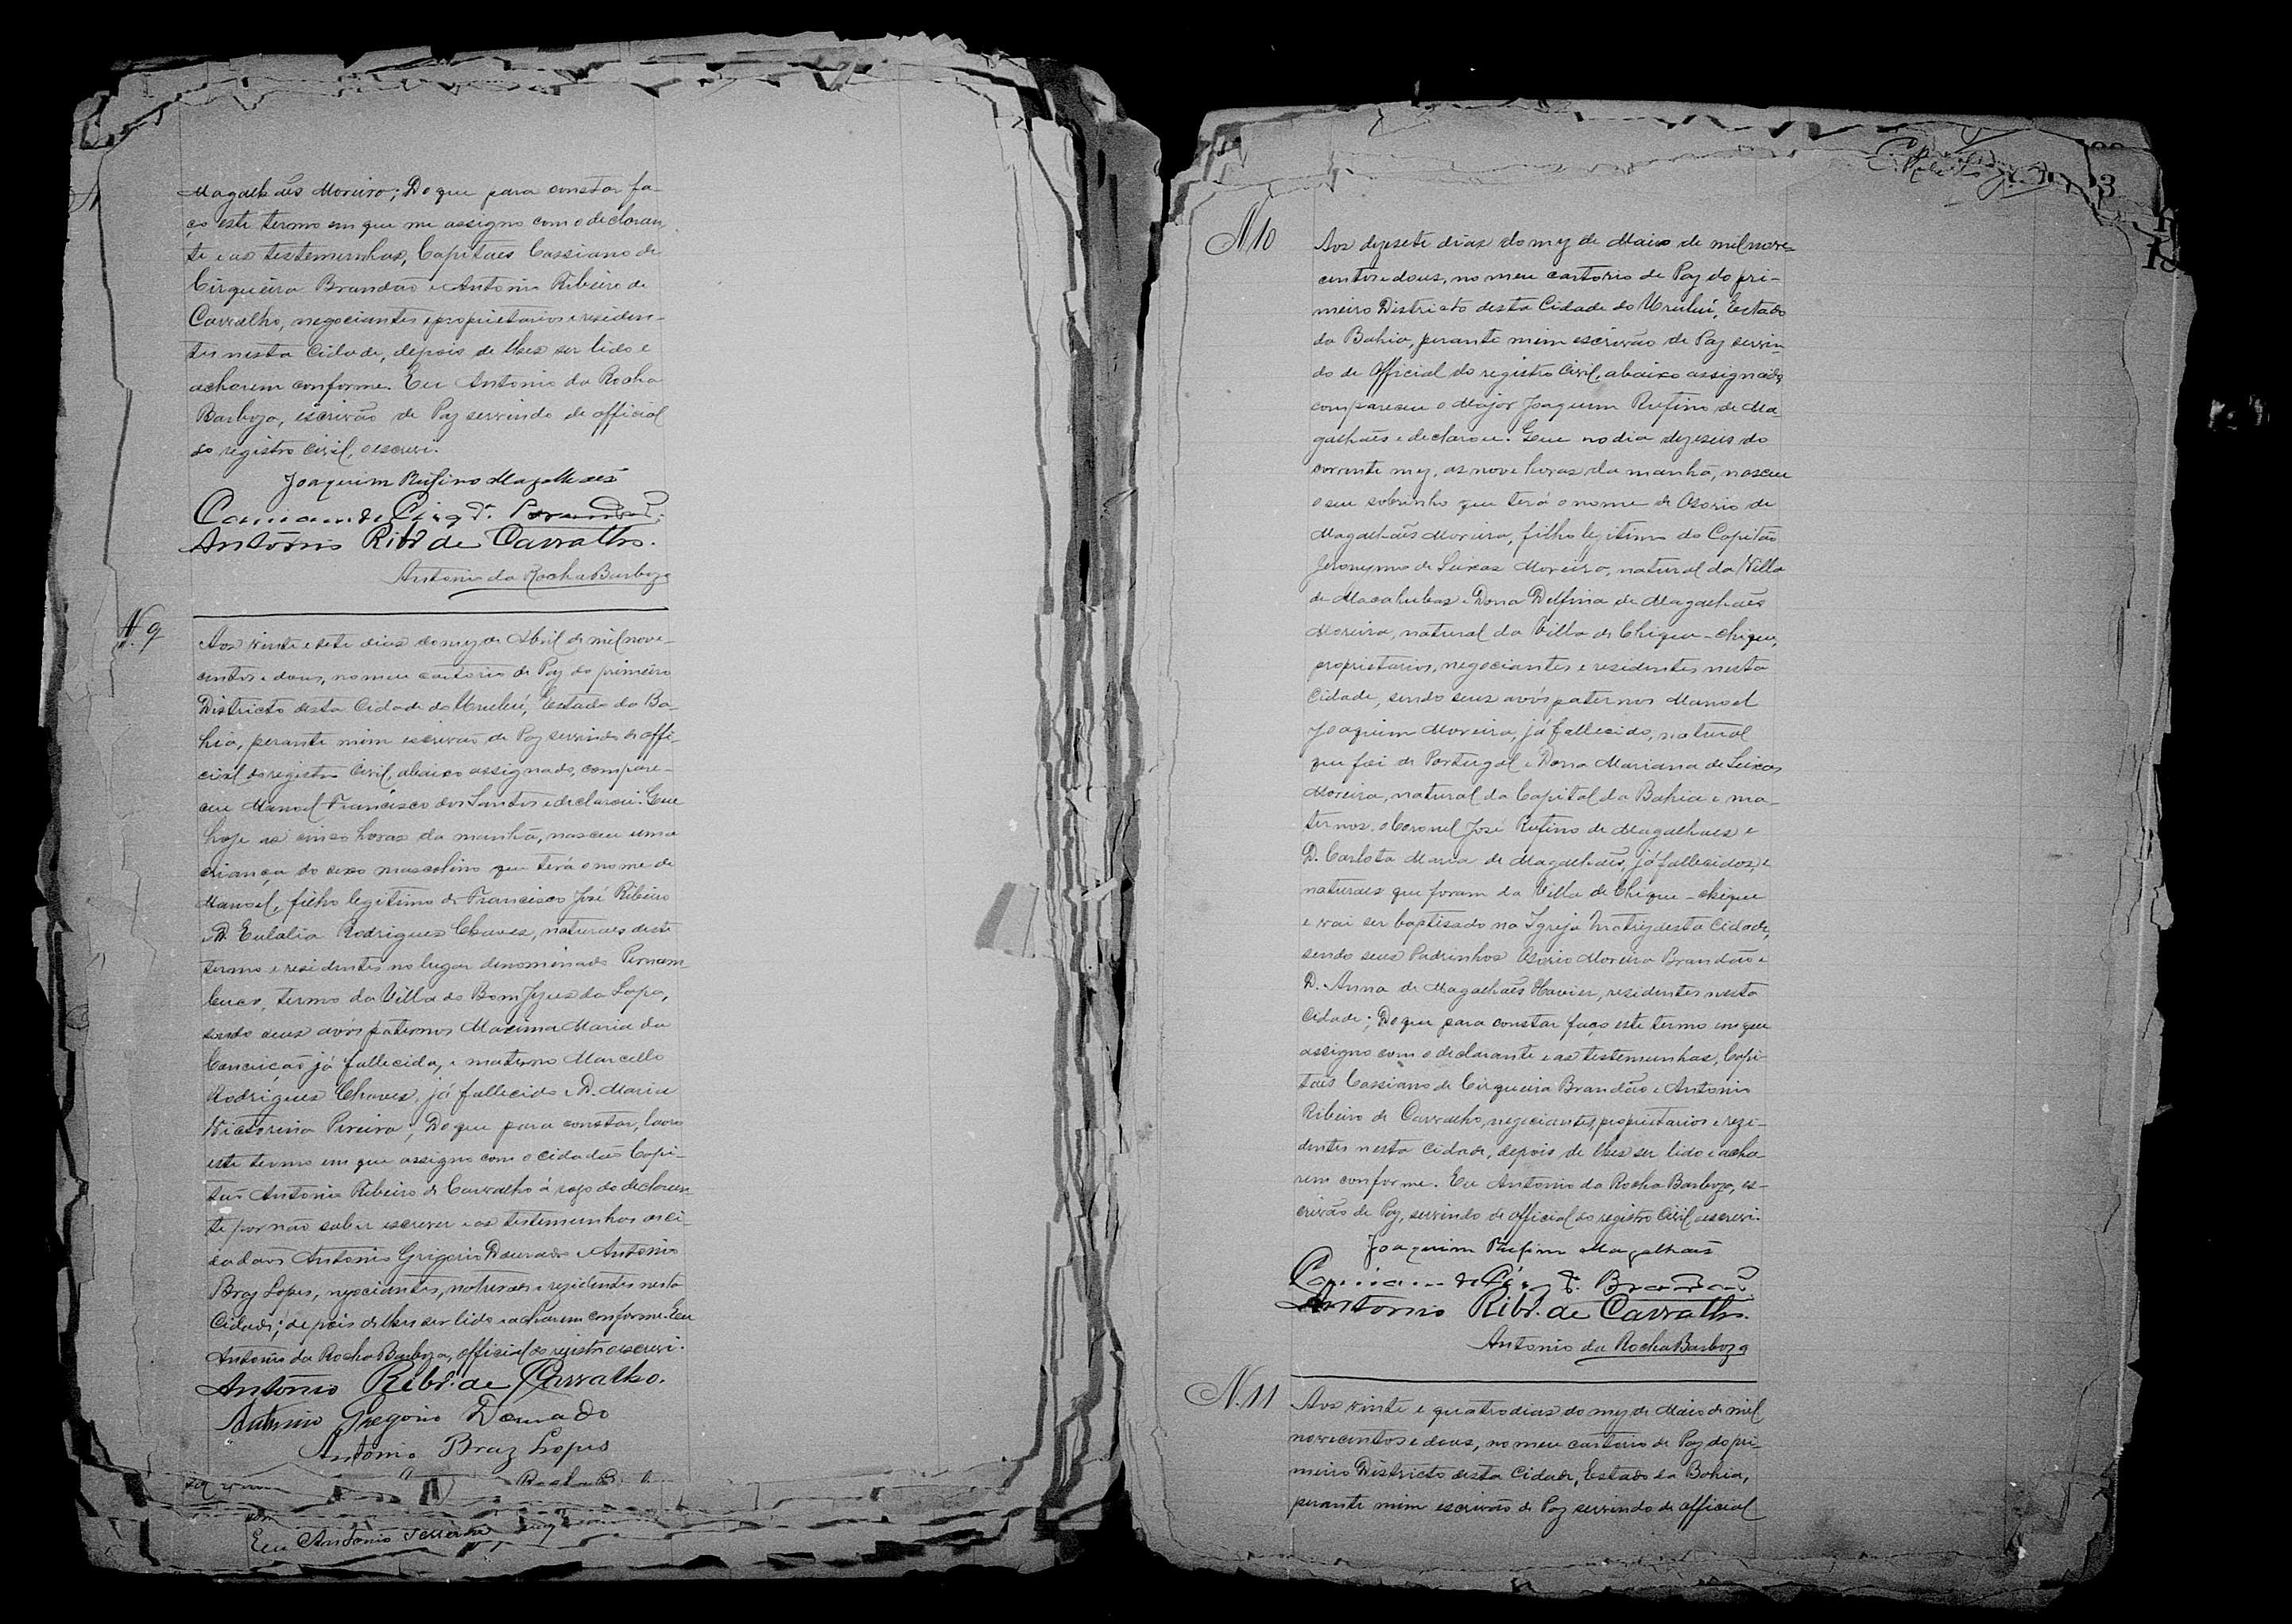 Magalhães Moreira; Do que para constar fa-
ço este termo em que me assigno com o declaran-
te e as testemunhas, Capitães Cassiano de
Cirqueira Brandão e Antonio Ribeiro de
Carvalho, negociantes e proprietarios e residen-
tes nesta Cidade, depois de lhes ser lido e
acharem conforme. Eu Antonio da Rocha
Barboza, escrivão de Paz servindo de official
do registro Civil, o escrevi.
Joaquim Rufino Magalhães
Antonio Ribr. de Carvalho.
Antonio da Rocha Barboza
N. 9
Aos vinte e sete dias do mez de Abril de mil nove-
centos e dous, no meu cartorio de Paz do primeiro
Districto desta Cidade do Urubú, Estado da Ba-
hia, perante mim escrivão de Paz servindo de offi-
cial do registro Civil, abaixo assignado, compare-
ceu Manoel Francisco dos Santos e declarou: Que
hoje as cinco horas da manhã, nasceu uma
criança do sexo masculino que terá o nome de
Manoel, filho legitimo de Francisco José Ribeiro
e D. Eulalia Rodrigues Chaves, naturaes deste
termo e residentes no lugar denominado Pernam-
buco, termo da Villa do Bom Jezus da Lapa,
sendo seus avós paternos Maxima Maria da
Conceição já fallecida, e materno Marcello
Rodrigues Chaves, já fallecido e D. Maria
Victorina Pereira; Do que para constar, lavro
este termo em que assigno com o cidadão Capi-
tão Antonio Ribeiro de Carvalho á rogo do declaran-
te por não saber escrever e as testemunhas os ci-
dadãos Antonio Grigorio Dourado e Antonio
Braz Lopes, negociantes, naturaes e rezidentes nesta
Cidade; depois de lhes ser lido e acharem conforme. Eu
Antonio da Rocha Barboza, official do registro o escrevi.
Antonio Ribr. de Carvalho.
Antonio Gregorio Dourado
Antonio Braz Lopes
Eu Antonio
3
N. 10
Aos dezesete dias do mez de Maio de mil nove-
centos e dous, no meu cartorio de Paz do pri-
meiro Districto desta Cidade do Urubú, Estado
da Bahia, perante mim escrivão de Paz servin-
do de Official do registro Civil, abaixo assignado,
compareceu o Major Joaquim Rufino de Ma-
galhães e declarou: Que no dia dezeseis do
corrente mez, as nove horas da manhã, nasceu
o seu sobrinho que terá o nome de Osorio de
Magalhães Moreira, filho legitimo do Capitão
Jeronymo de Seixas Moreira, natural da Villa
de Macahubas e Dona Delfina de Magalhães
Moreira, natural da Villa de Chique-chique,
proprietarios, negociantes e residentes nesta
Cidade, sendo seus avós paternos Manoel
Joaquim Moreira, já fallecido, natural
que foi de Portugal e Dona Mariana de Seixas
Moreira, natural da Capital da Bahia e ma-
ternos, o Coronel José Rufino de Magalhães e
D. Carlota Maria de Magalhães, já fallecidos, e
naturaes que foram da Villa de Chique-chique
e vai ser baptisado na Igreja Matriz desta Cidade,
sendo seus Padrinhos Osorio Moreira Brandão e
D. Anna de Magalhães Xavier, residentes nesta
Cidade; Do que para constar faço este termo em que
assigno com o declarante e as testemunhas, Capi-
tães Cassiano de Cirqueira Brandão e Antonio
Ribeiro de Carvalho, negociantes, proprietarios e rezi-
dentes nesta Cidade, depois de lhes ser lido e acha-
rem conforme. Eu Antonio da Rocha Barboza, es-
crivão de Paz, servindo de official do registro Civil o escrevi.
Joaquim Rufino Magalhães
Antonio Ribr. de Carvalho.
Antonio da Rocha Barboza
N. 11
Aos vinte e quatro dias do mez de Maio de mil
novecentos e dous, no meu cartorio de Paz do pri-
meiro Districto desta Cidade, Estado da Bahia,
perante mim escrivão de Paz servindo de official